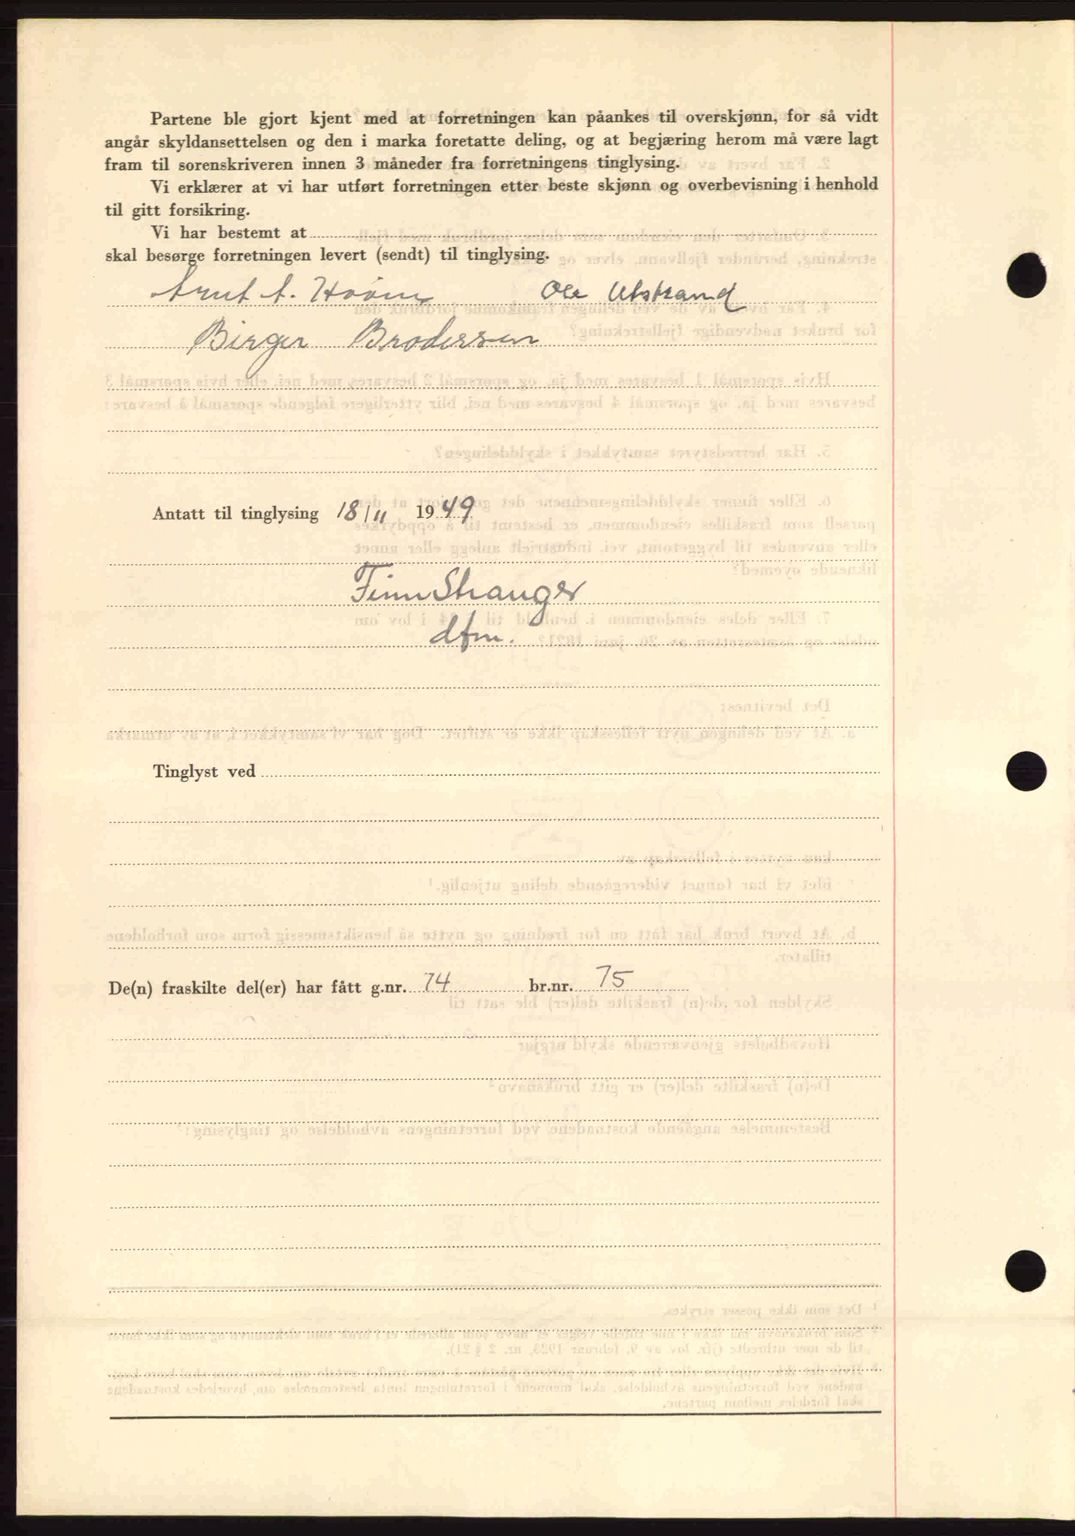 Partene ble gjort kjent med at forretningen kan påankes til overskjønn, for så vidt
angår skyldansettelsen og den i marka foretatte deling, og at begjæring herom må være lagt
fram til sorenskriveren innen 3 måneder fra forretningens tinglysing.
Vi erklærer at vi har utført forretningen etter beste skjønn og overbevisning i henhold
til gitt forsikring.
Vi har bestemt at
skal besørge forretningen levert (sendt) til tinglysing.
Arnt A. Ole Utstrand
Birger Brodersen
Antatt til tinglysing 18/11 1949
Finn Stranger
dfm.
Tinglyst ved
De(n) fraskilte del(er) har fått g.nr. 74 br.nr. 75